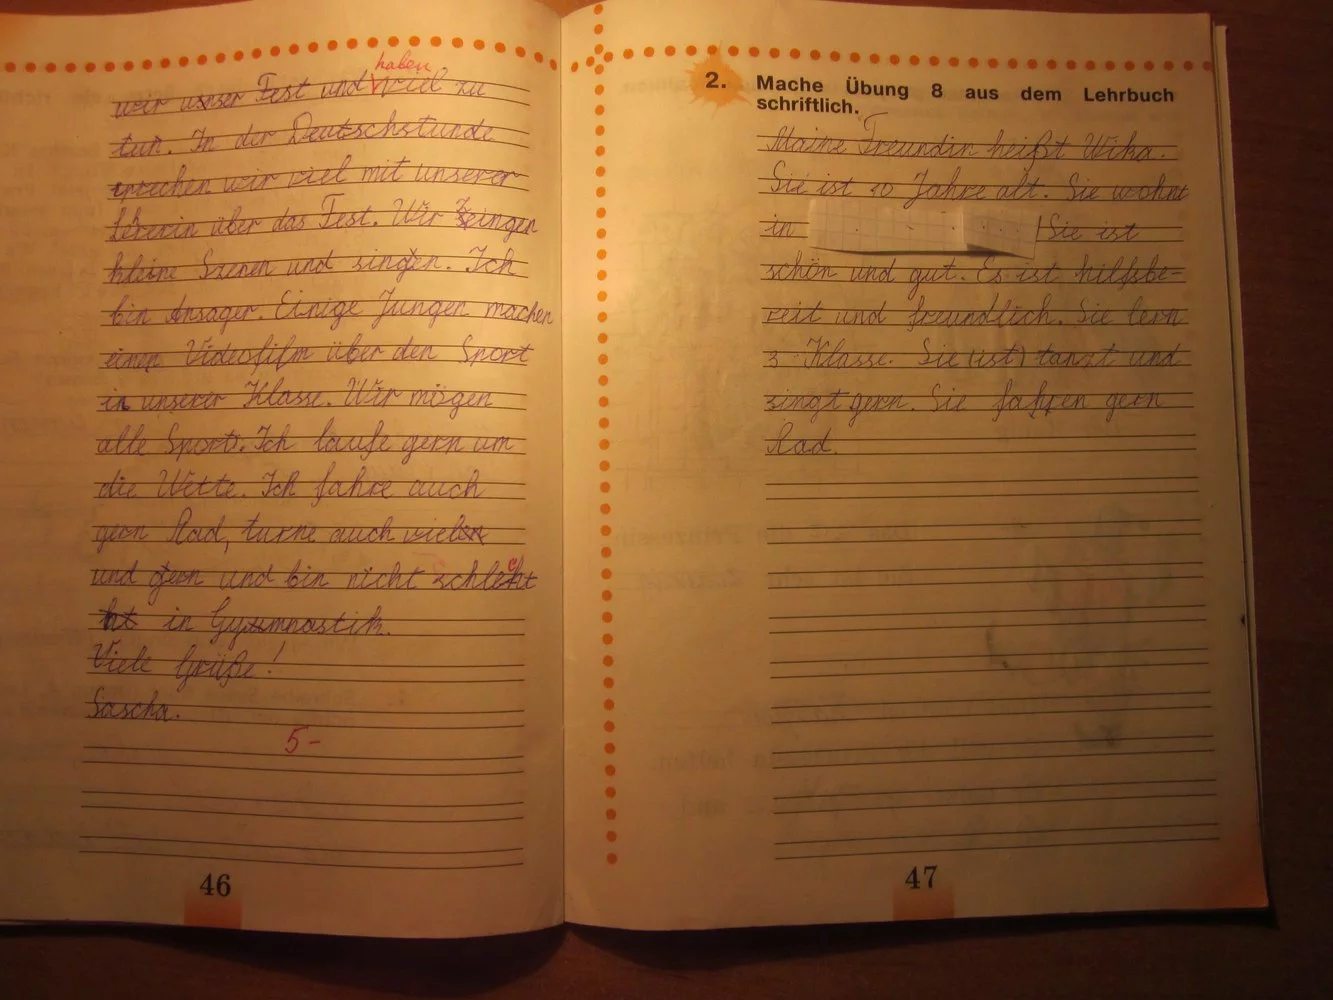 haben
wir unser Fest und viel zu
tun. In der Deutschstunde
sprechen wir viel mit unserer
über das Fest. Wir
kleine Szenen und singen. Ich
bin Ansager. Einige Jungen machen
einen Videofilm über den Sport
in unserer Klasse. Wir mögen
alle Sport. Ich laufe gern um
die Wette. Ich fahre auch
gern Rad, turne auch
und gern und bin nicht schlecht
in Gymnastik.
Viele Grüße!
Sascha.
5-
46
2. Mache Übung 8 aus dem Lehrbuch
schriftlich.
Meine Freundin heißt Wika.
Sie ist 10 Jahre alt. Sie wohnt
in Sie ist
schön und gut. Es ist hilfsbe-
reit und freundlich. Sie lern
3 Klasse. Sie (ist) tanzt und
singt gern. Sie fahren gern
Rad.
47